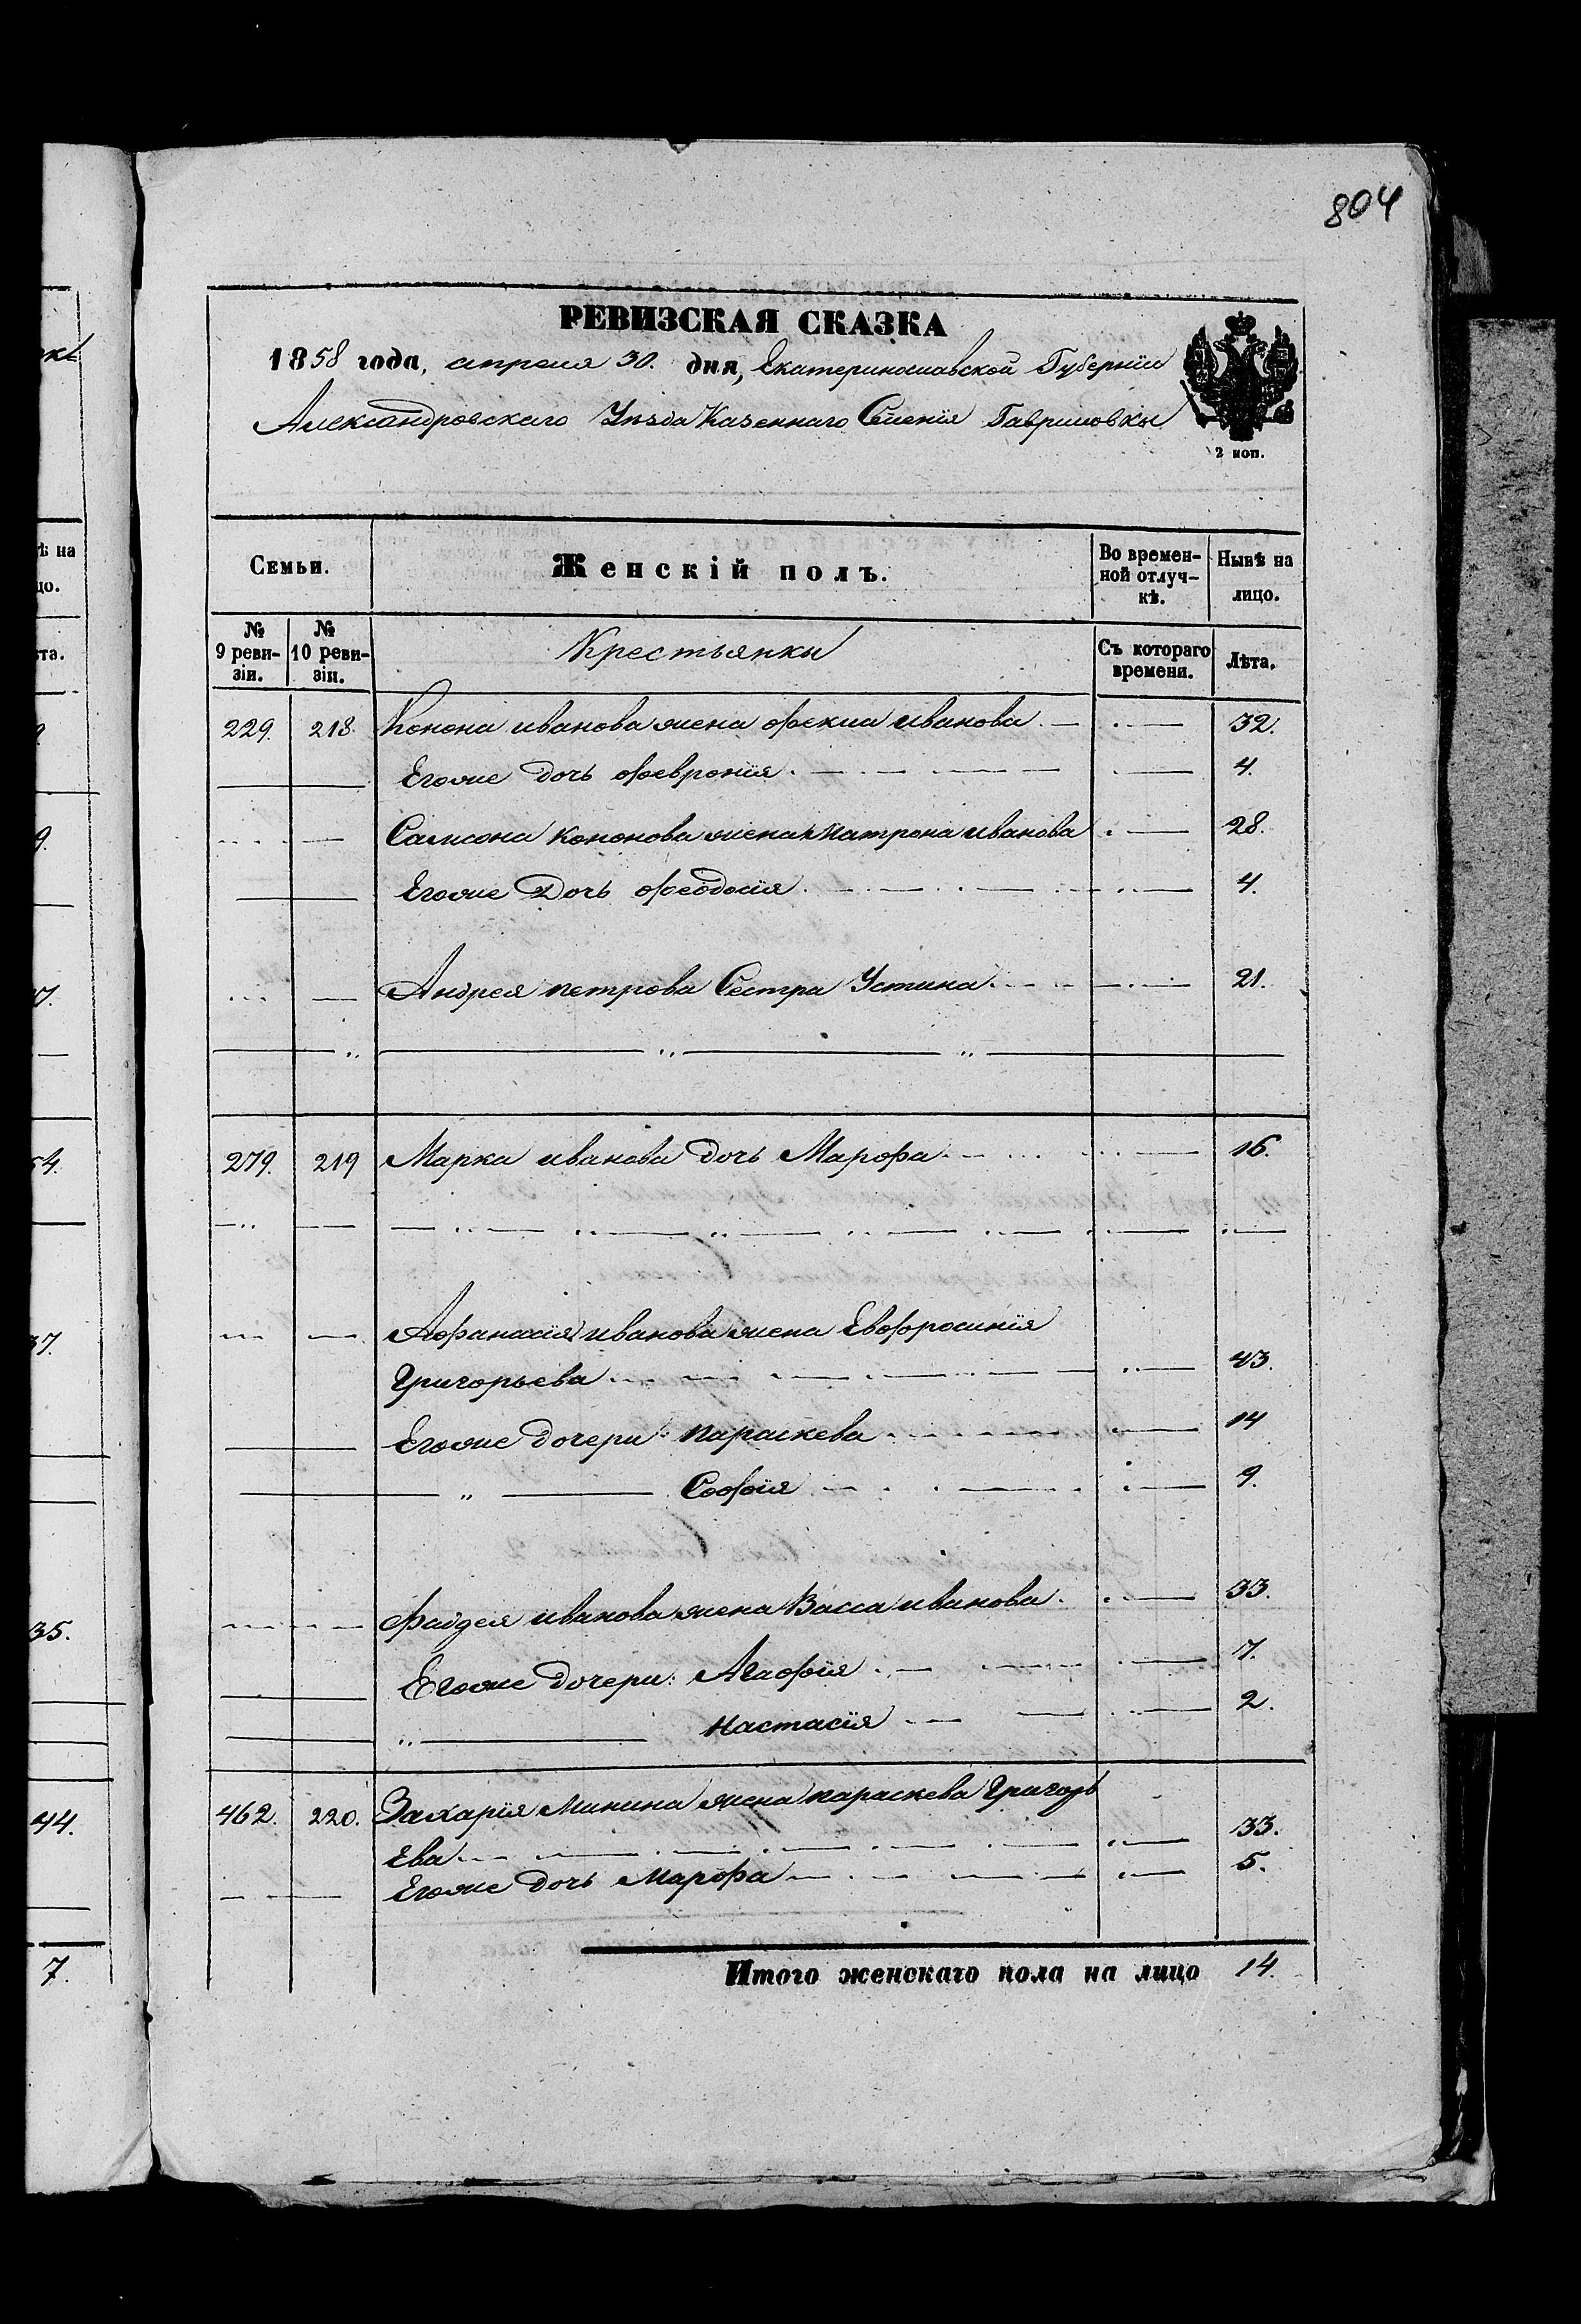 804
РЕВИЗСКАЯ СКАЗКА
1858 года, апреля 30. дня, Екатеринославской Губернiи
Александровскаго Уѣзда Казеннаго Селенiя Гавриловки
2 коп.
Семьи.
Женскiй полъ.
Во времен-
ной отлуч-
кѣ.
Нынѣ на
лицо.
№
9 реви-
зiи.
№
10 реви-
зiи.
Крестьянки
Съ котораго
времени.
Лѣта.
229. 218. Конона иванова жена фекла иванова 32.
Егоже дочь феврония 4.
Самсона кононова жена Матрона иванова 28.
Егоже Дочь феодосiя 4.
Андрея петрова Сестра Устина 21.
279. 219 Марка иванова дочь Марфа 16.
Афанасiя иванова жена Евфросинiя
Григорьева 43.
Егоже дочери: параскева 14
Софiя 9.
Фадея иванова жена Васса иванова 33.
Егоже дочери: Агафiя 7.
Настасiя 2.
462. 220. Захарiя Минина жена параскева Григорь
Ева 33.
Егоже дочь Марфа 5.
Итого женскаго пола на лицо 14.
ѣ на
цо.
ѣта.
54.
37.
35.
44.
7.